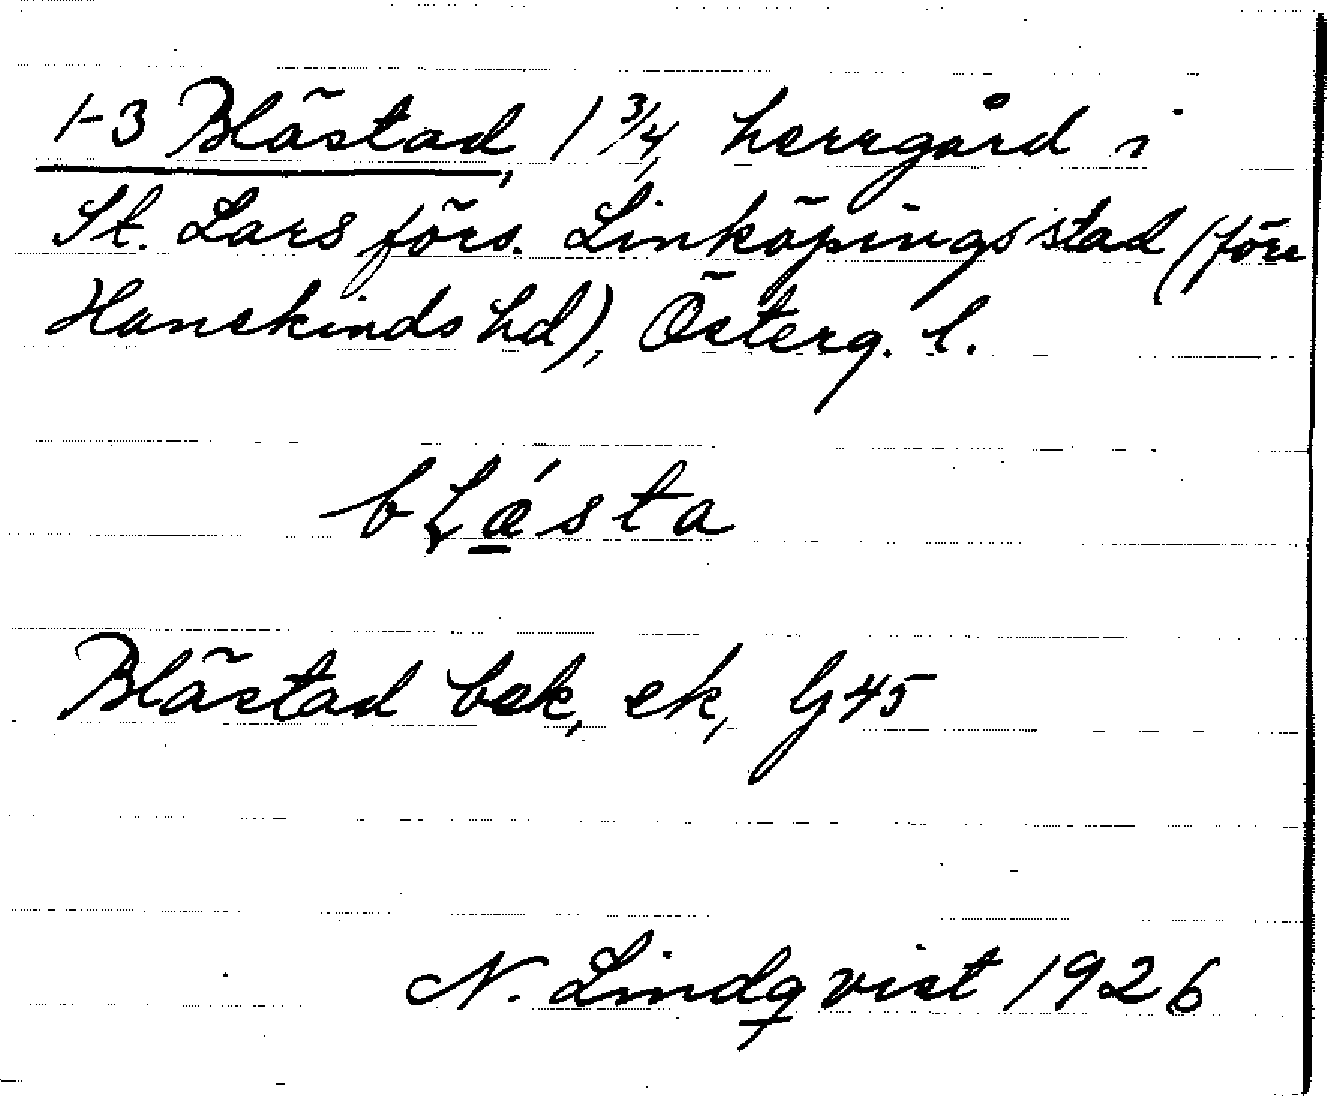 1-3 Blästad, 1 3/4, herrgård i
St. Lars förs. Linköpings stad (förr
Hanekinds hd), Österg. l.
bLásta
Blästad bek, ek, G45
N. Lindqvist 1926